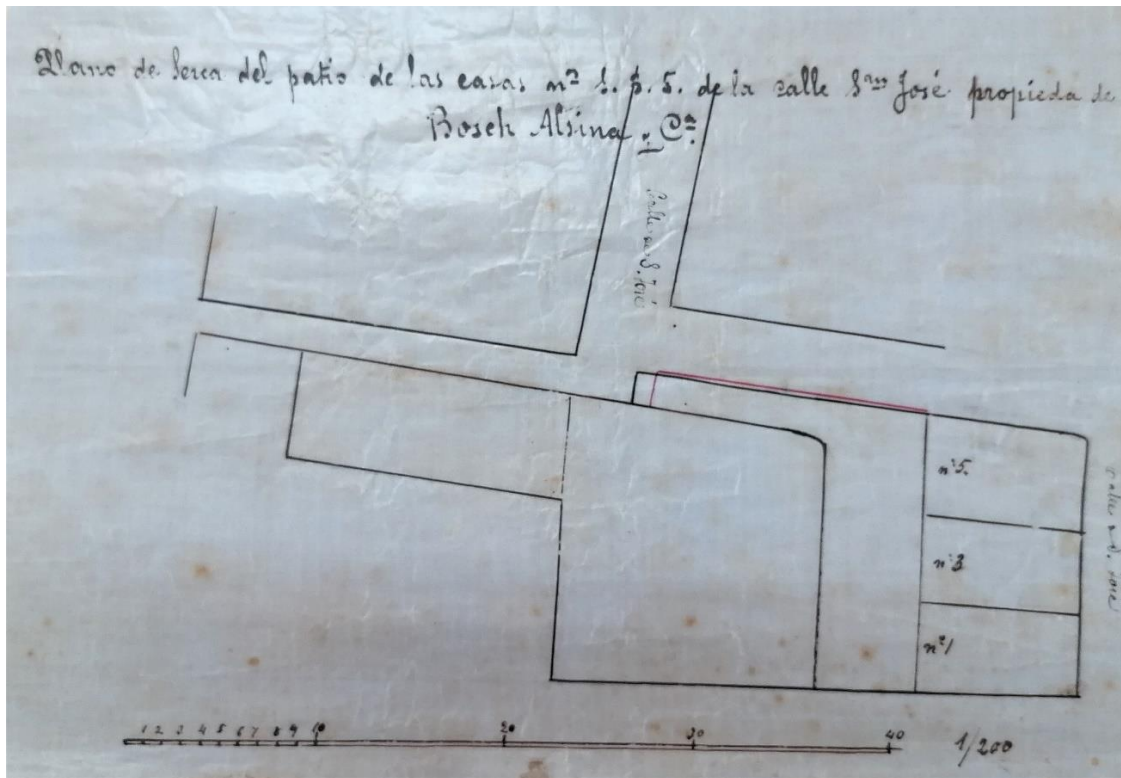 Plano de serca del patio de las casas nº 1. 3. 5. de la calle Sⁿ José propieda de
Bosch Alsina y Cª
Calle de S. José
nº 5.
nº 3
nº 1
calle de S. José
1 2 3 4 5 6 7 8 9 10 20 30 40 1/200